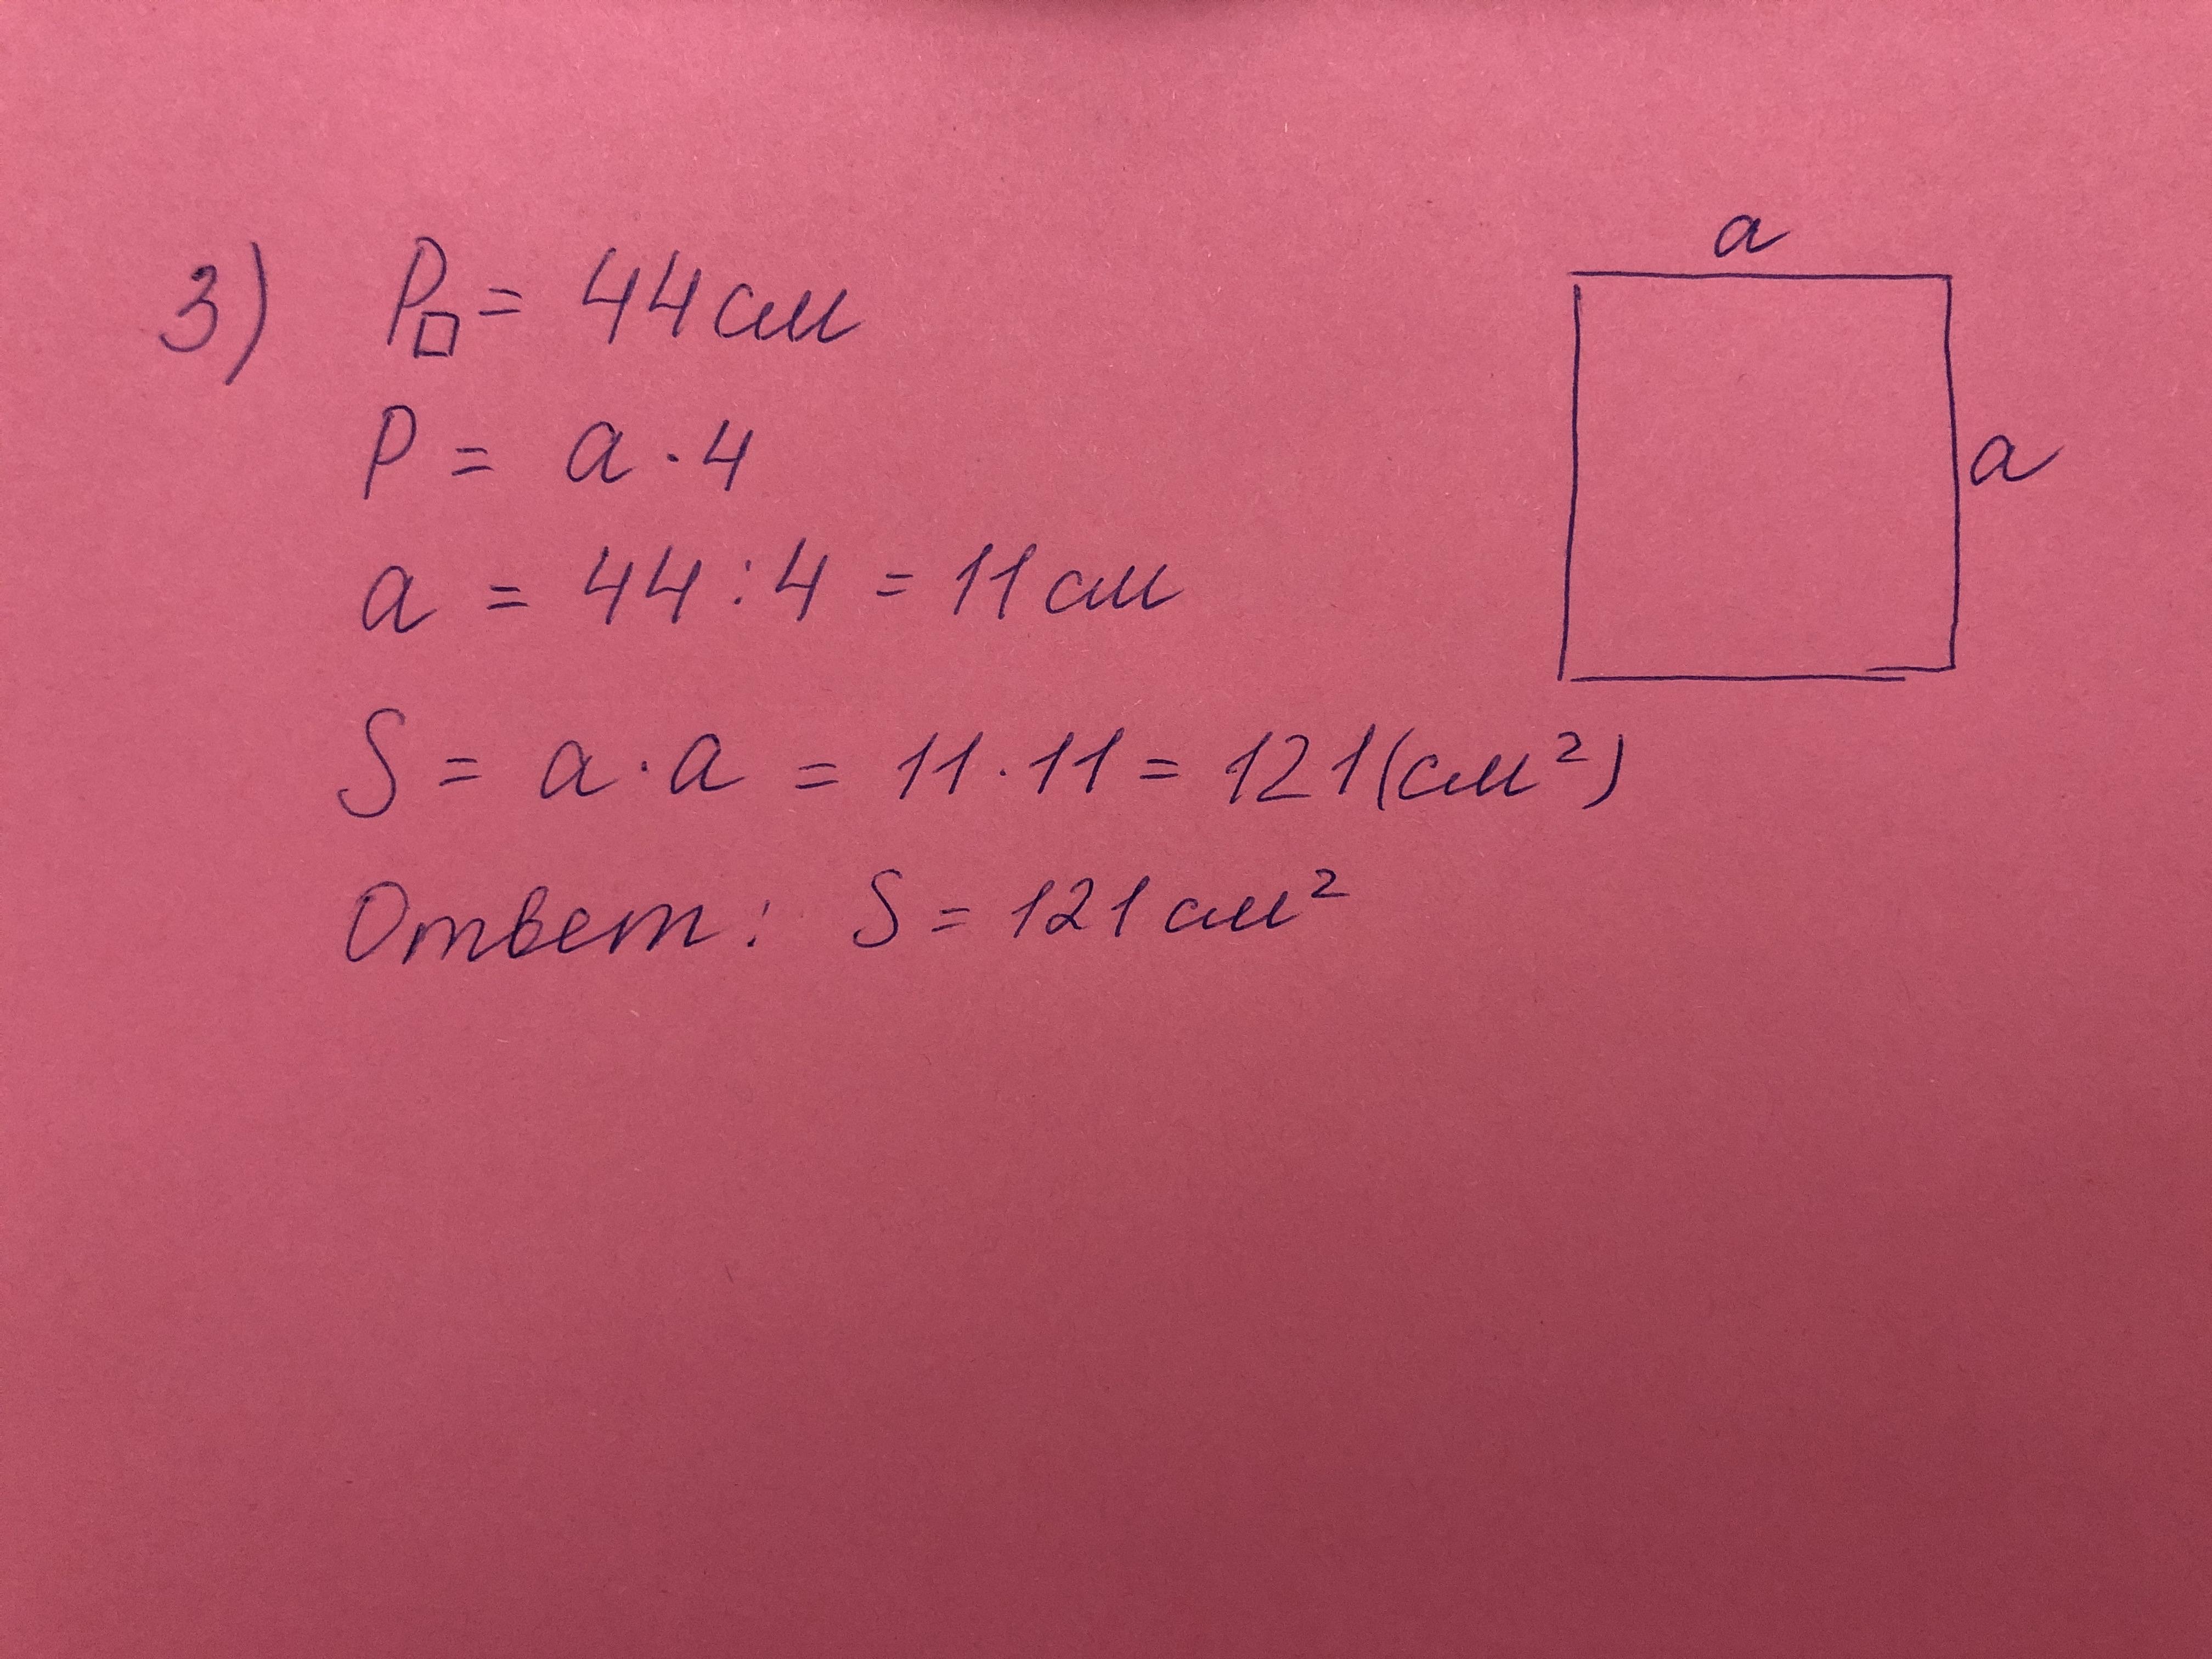 3) P□ = 44 см
a
P = a · 4
a
a = 44 : 4 = 11 см
S = a · a = 11 · 11 = 121 (см²)
Ответ: S = 121 см²